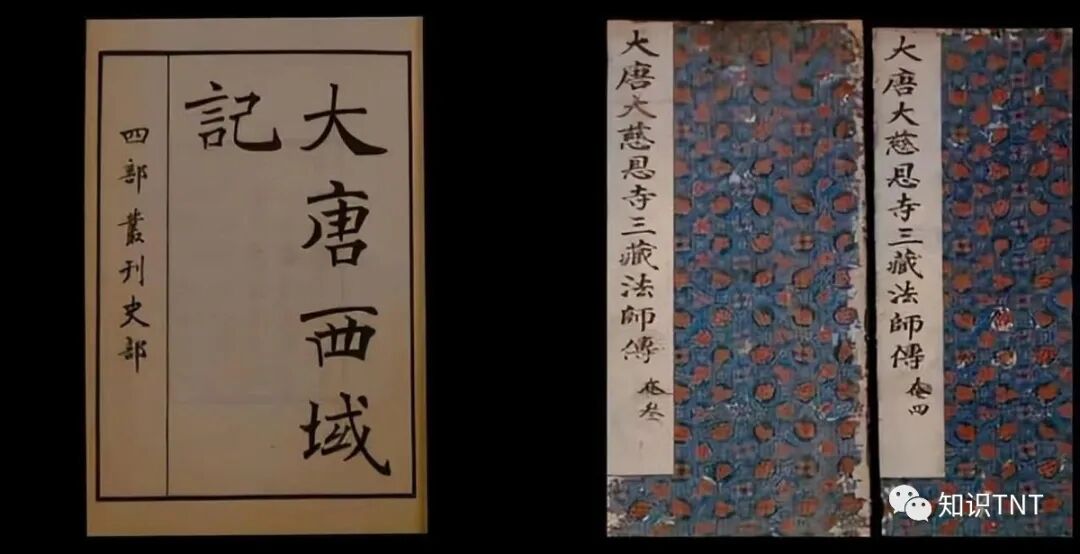 大唐西域
記
四部叢刊史部
大唐大慈恩寺三藏法師傳 卷叁
大唐大慈恩寺三藏法師傳 卷四
知识TNT